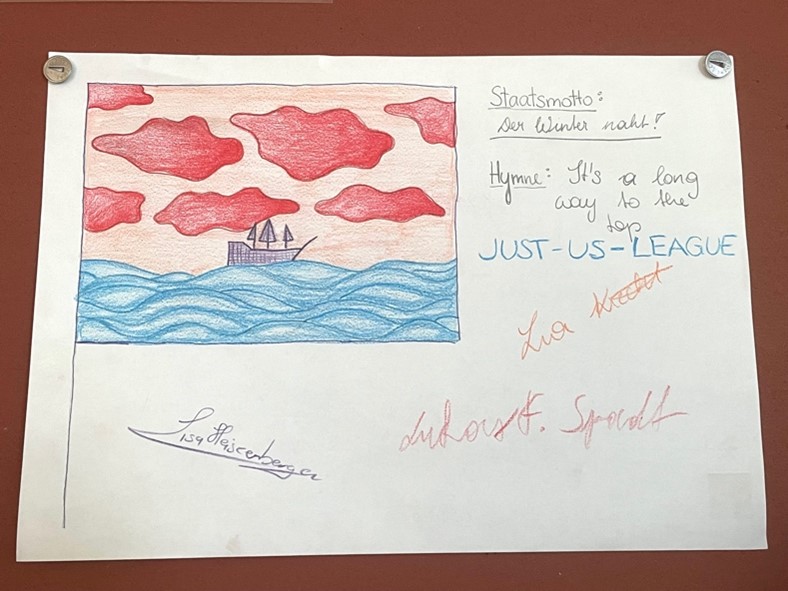 Staatsmotto:
Der Winter naht!
Hymne: It's a long
way to the
top
JUST-US-LEAGUE
Lea
Lisa Heiscenberger
Lukas F. Spadt